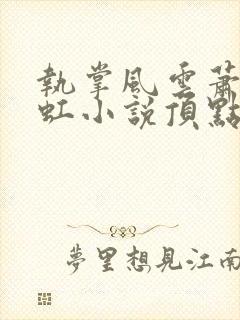 執掌風雲蕭
虹小說頂點
夢里想見江南